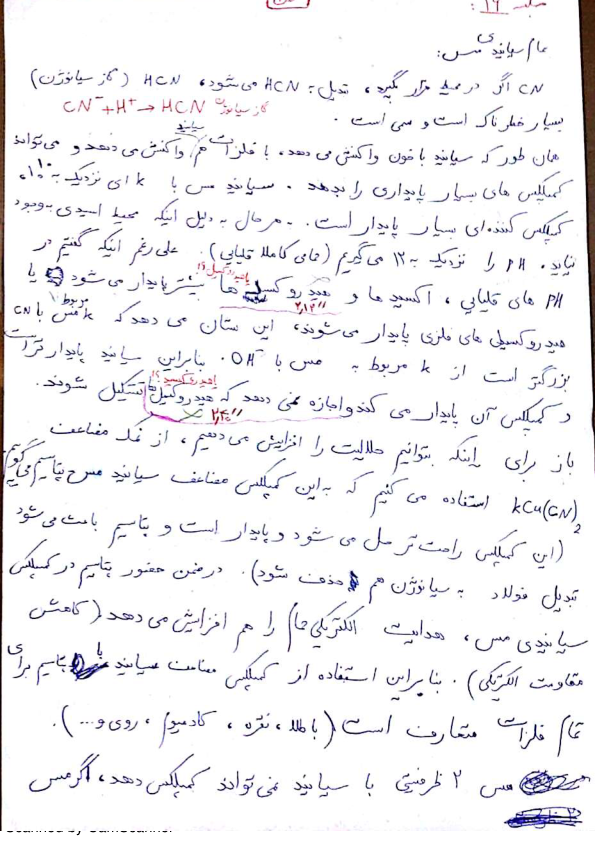 جلسه ۱۶:
حمام سیانیدی مس:
CN اگر در محیط قرار گیرد، تبدیل به HCN می‌شود، HCN (گاز سیانوژن)
CN⁻ + H⁺ → HCN گاز سیانوژن
بسیار خطرناک است و سمی است.
همان طور که سیانید با خون واکنش می دهد، با فلزات هم واکنش می دهد و می‌تواند
سیانید
کمپلکس های بسیار پایداری را بدهد. سیانید مس با k ای نزدیک به
کمپلکس کننده‌ای بسیار پایدار است. هرحال به دلیل اینکه محیط اسیدی بوجود
نیاید، PH را نزدیک به ۱۲ می گیریم (حمامی کاملا قلیایی). علی رغم اینکه گفتیم در
یا هیدروکسید؟!
PH های قلیایی، اکسید ها و هیدروکسیل ها بیشتر پایدار می شود یا
۲,۱۳"
هیدروکسیلی های فلزی پایدار می‌شوند، این نشان می دهد که k مربوط به مس با CN
بزرگتر است از k مربوط به مس با OH⁻. بنابراین سیانید پایدارتر است
یا هیدروکسید؟!
و کمپلکس آن پایدار می کند و اجازه نمی دهد که هیدروکسیل ها تشکیل شوند.
باز برای اینکه بتوانیم حلالیت را افزایش می دهیم، از نمک مضاعف
kCu(CN)₂ استفاده می کنیم که به این کمپلکس مضاعف سیانید مس پتاسیم می‌گوییم
(این کمپلکس راحت تر حل می شود و پایدار است و پتاسیم باعث می‌شود
تبدیل فولاد به سیانوژن هم حذف شود). درضمن حضور پتاسیم در کمپلکس
سیانیدی مس، هدایت الکتریکی حمام را هم افزایش می دهد (کاهش
مقاومت الکتریکی). بنابراین استفاده از کمپلکس مضاعف سیانید با پتاسیم برای
تمام فلزات متعارف است (با طلا، نقره، کادمیوم، روی و...).
مس ۲ ظرفیتی با سیانید نمی تواند کمپلکس دهد، اگر مس